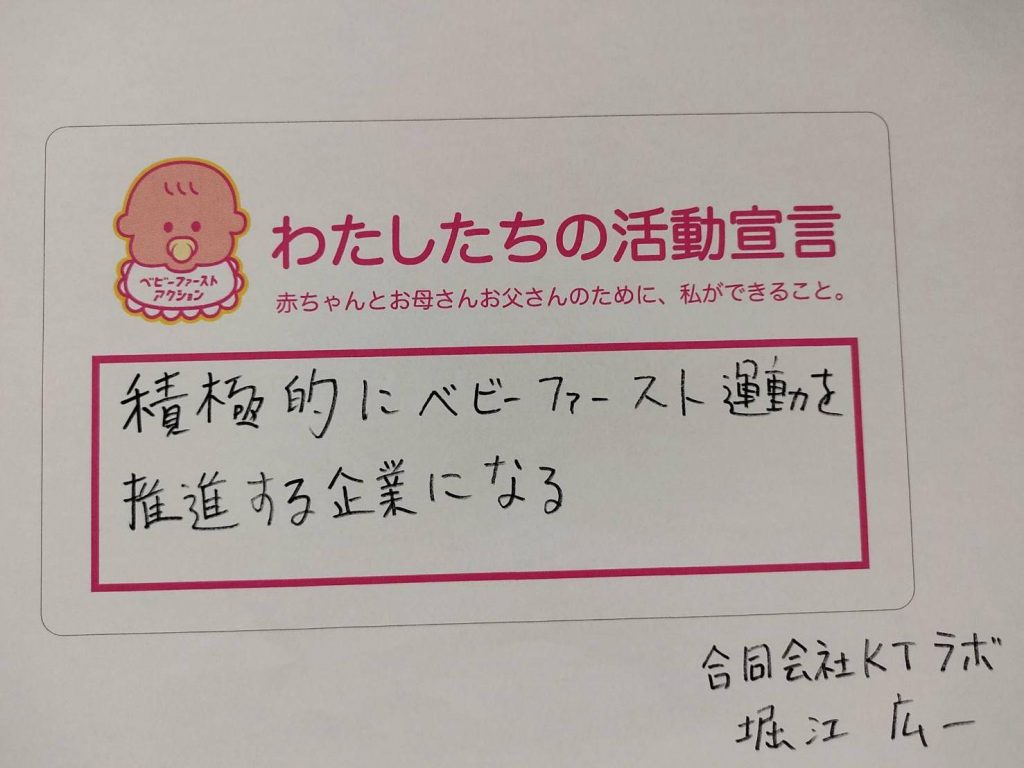 ベビーファースト
アクション
わたしたちの活動宣言
赤ちゃんとお母さんお父さんのために、私ができること。
積極的にベビーファースト運動を
推進する企業になる
合同会社KTラボ
堀江 広一